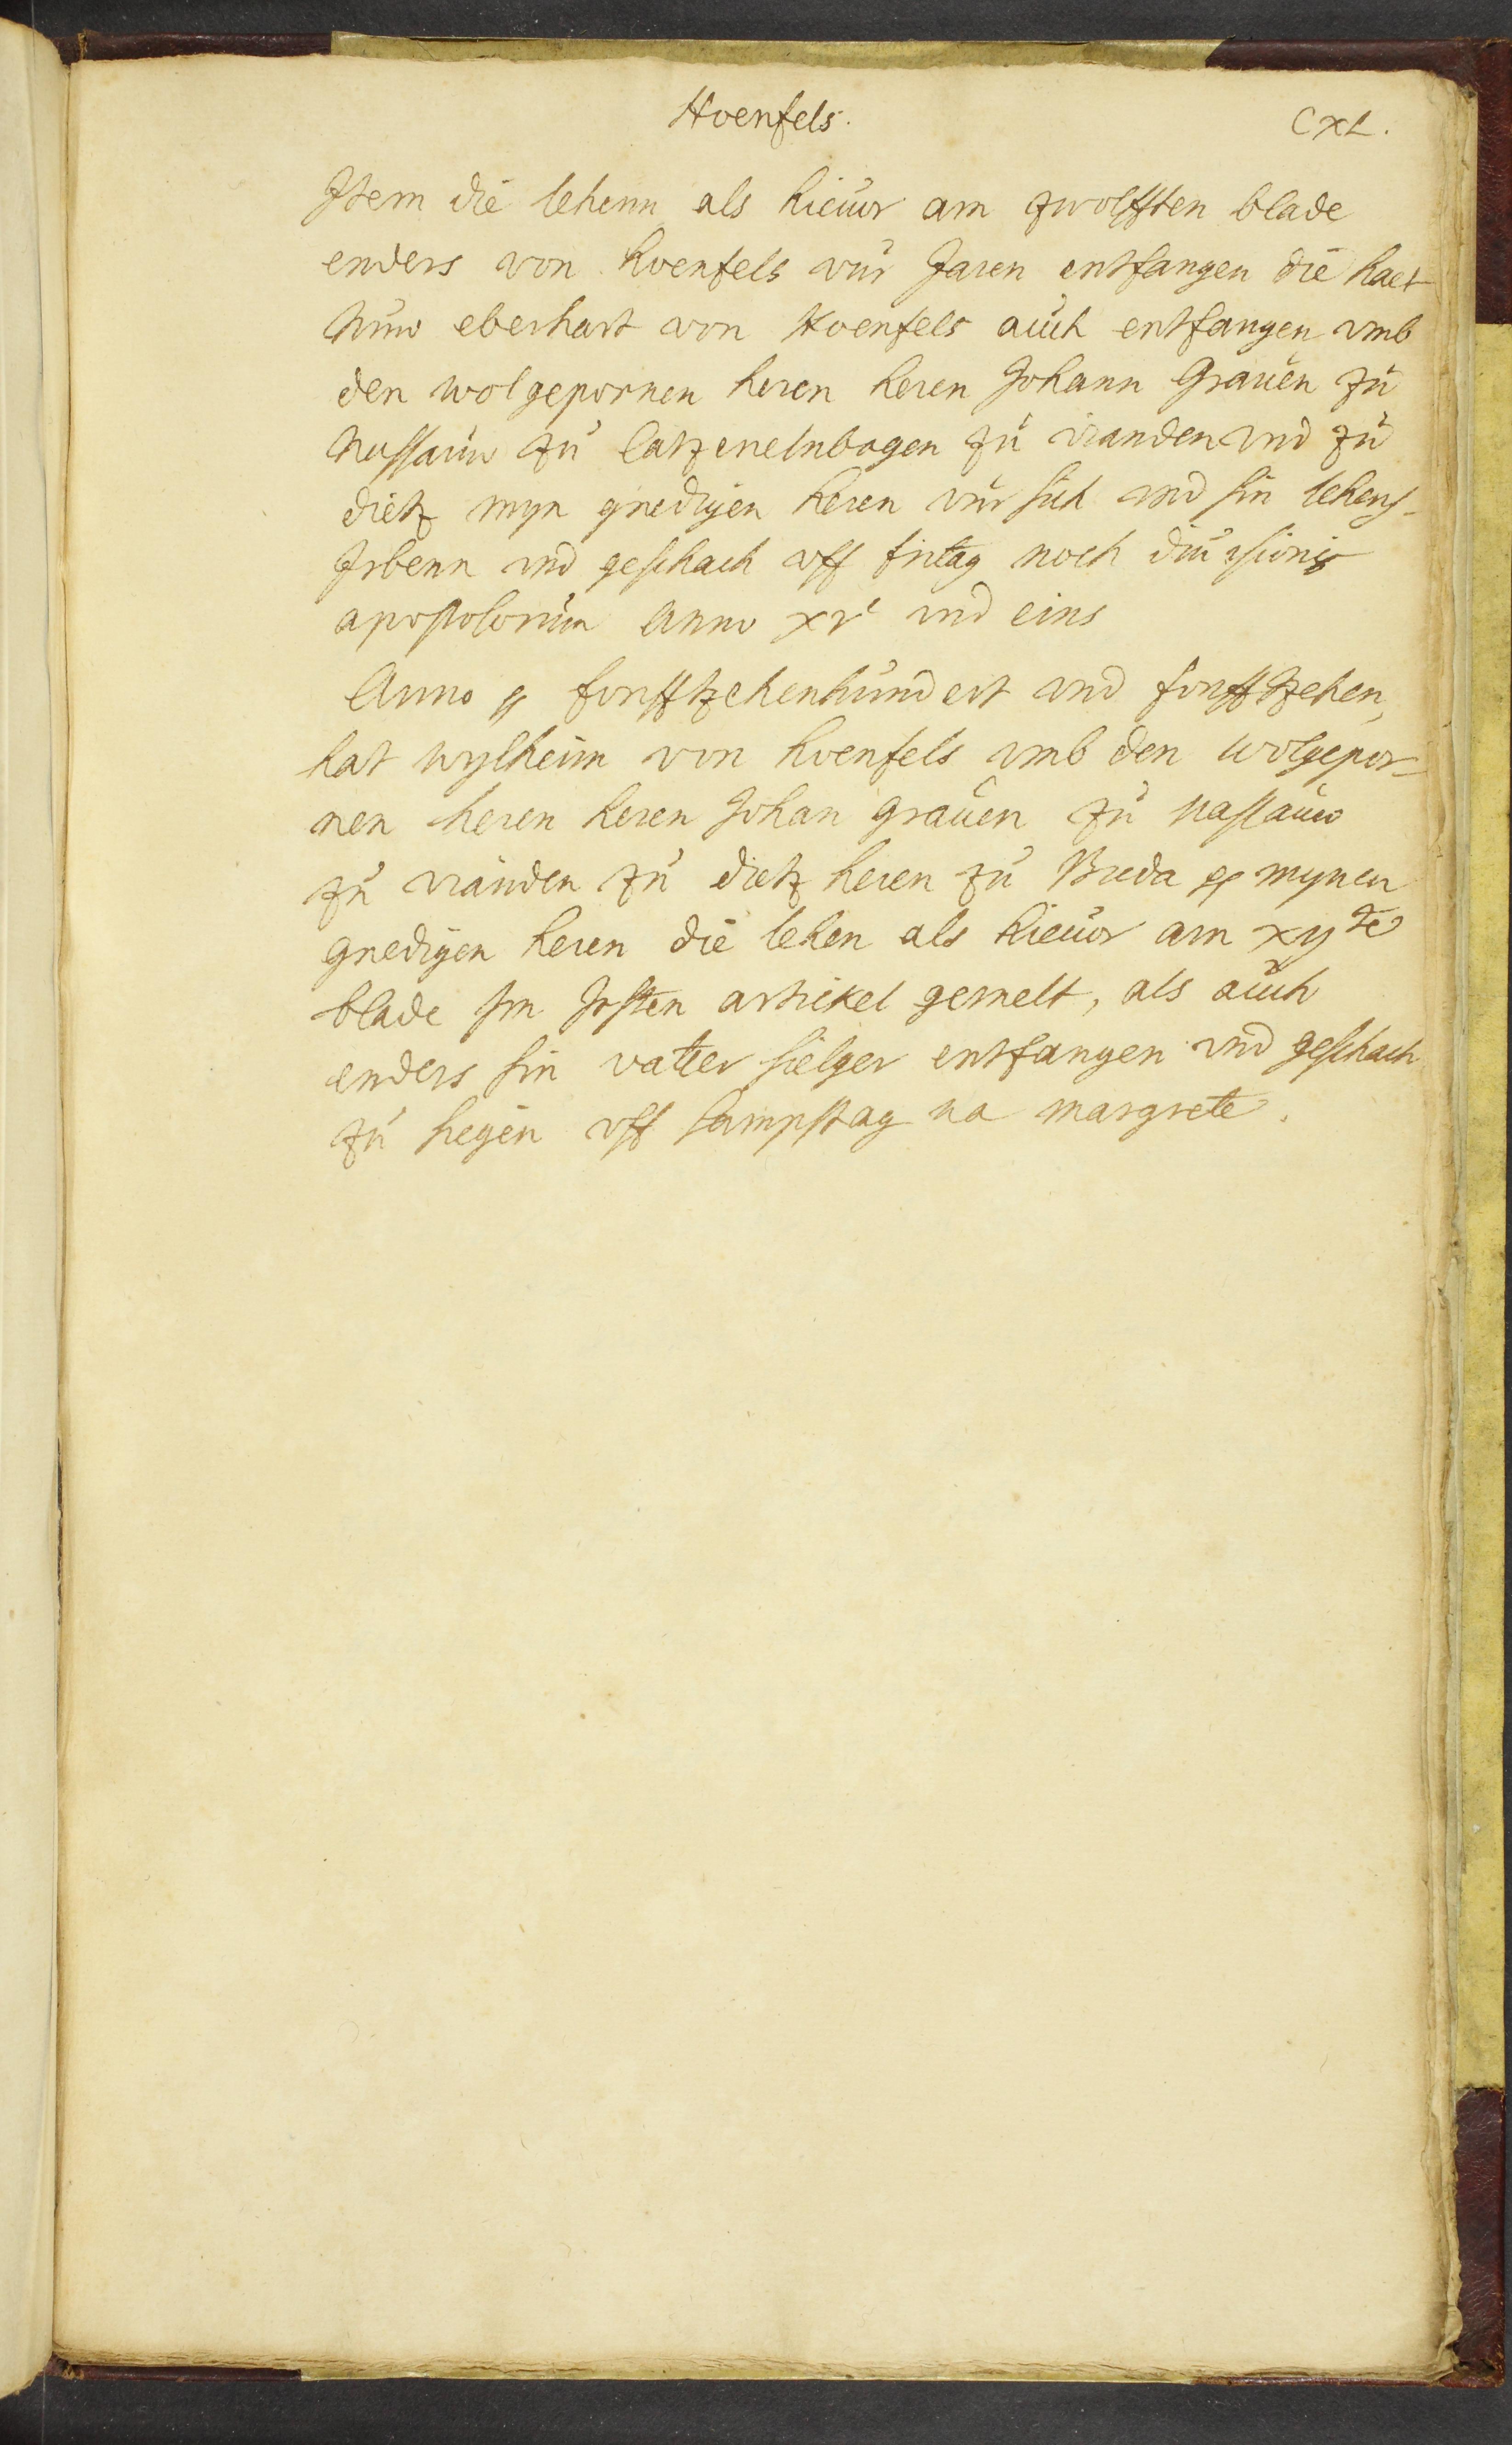 Hoenfels.
CXL.
Item die lehenn als hieuor am zwolfften blade
enders von hoenfels vur Jaren entfangen die haet
Nuw eberhart von Hoenfels auch entfangen vmb
den wolgepornen heren heren Johann Grauen zu
Nassauw zu Catzenelnbogen zu vianden vnd zu
dietz myn gnedigen heren vur sich vnd sin lehens-
Irbenn vnd geschach vff fritag noch diuisionis
apostolorum Anno xvc vnd eins
Anno funfftzehenhundert vnd funfftzehen,
hat wylhelm von hoenfels vmb den wolgepor-
nen heren heren Johan grauen zu nassauw
zu vianden zu dietz heren zu Breda mynen
gnedigen heren die lehen als hieuor am xijte
blade Im Irsten artickel gemelt, als auch
enders sin vatter sielger entfangen vnd geschach
zu hegen vff sampstag na margrete.